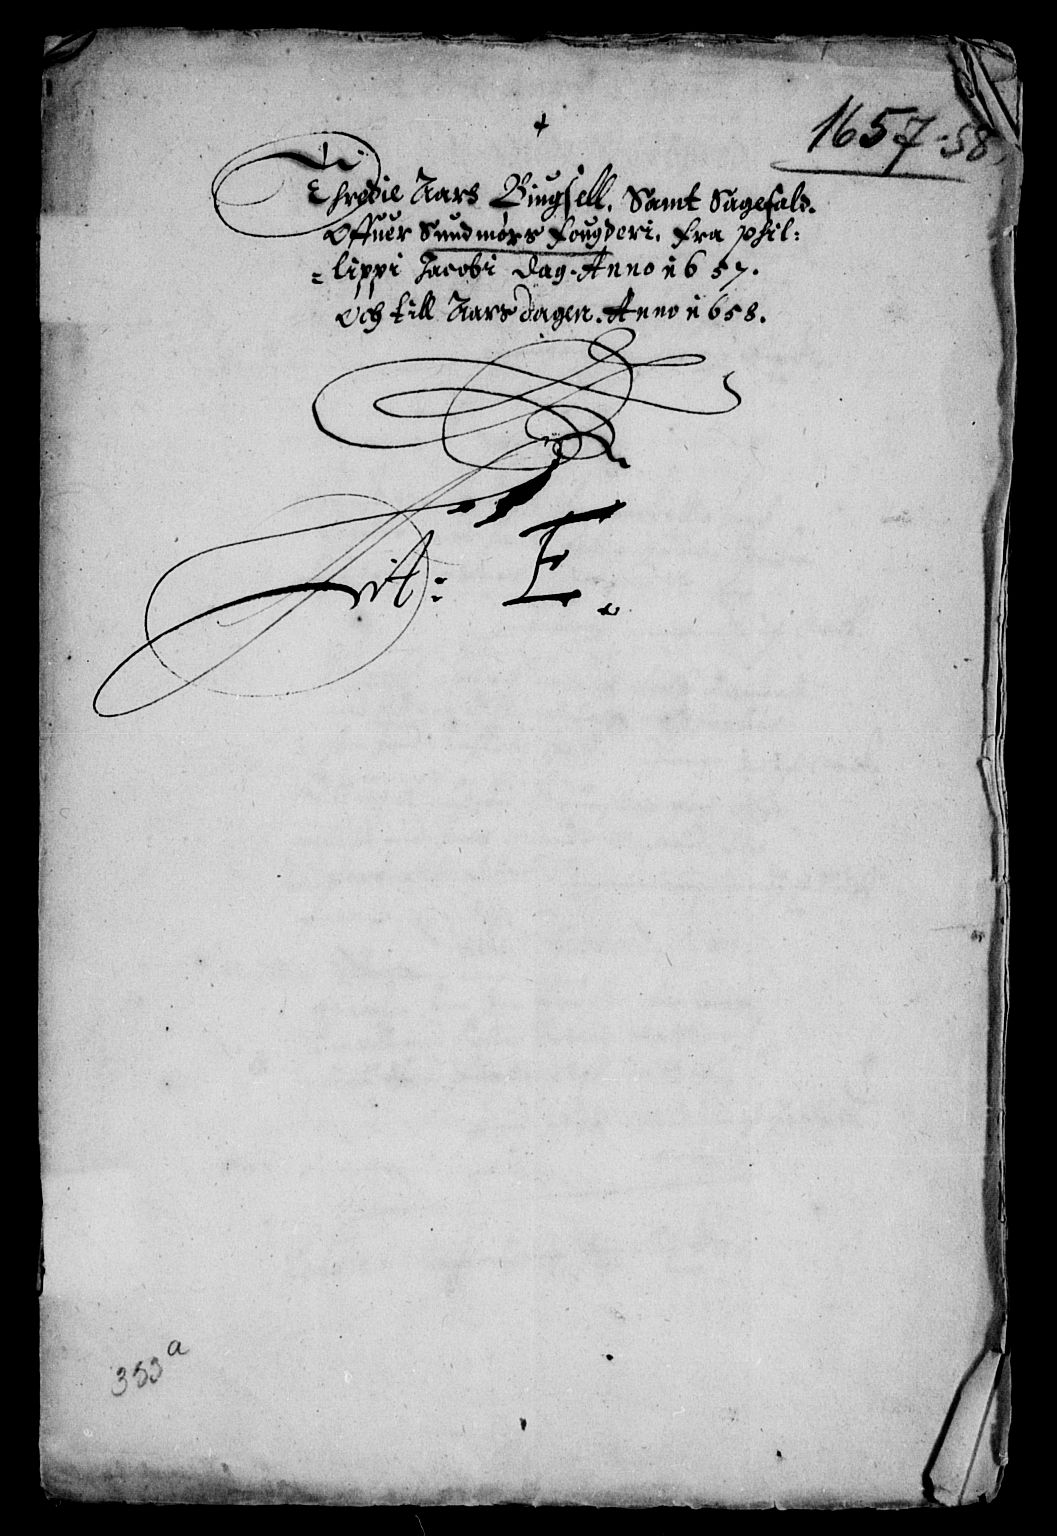 1657-58.
Thredie Aars Bÿugsell. Samt Sagefald.
Offuer Sundmørs fougderi. Fra phil:
=lippi Jacobi dag. Anno 1657.
Och till Aarsdagen. Anno 1658.
Lit: E.
353a